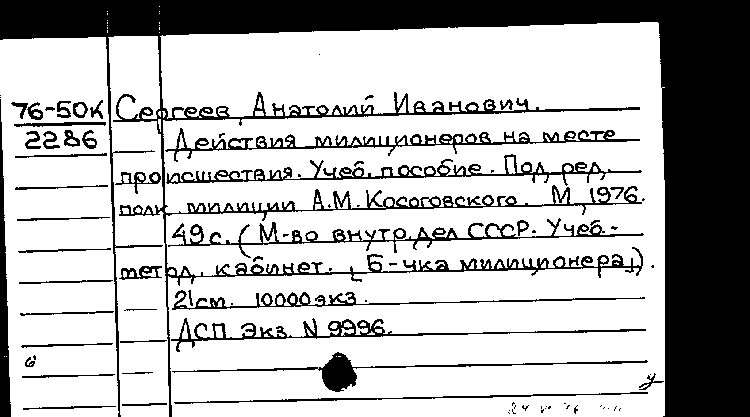 76-50К Сергеев, Анатолий Иванович.
2286 Действия милиционеров на месте
происшествия. Учеб. пособие. Под ред.
полк. милиции А.М. Косоговского. М., 1976.
49 с. (М-во внутр. дел СССР. Учеб.-
метод. кабинет. [Б-чка милиционера]).
21 см. 10000 экз.
ДСП. Экз. N 9996.
б
у